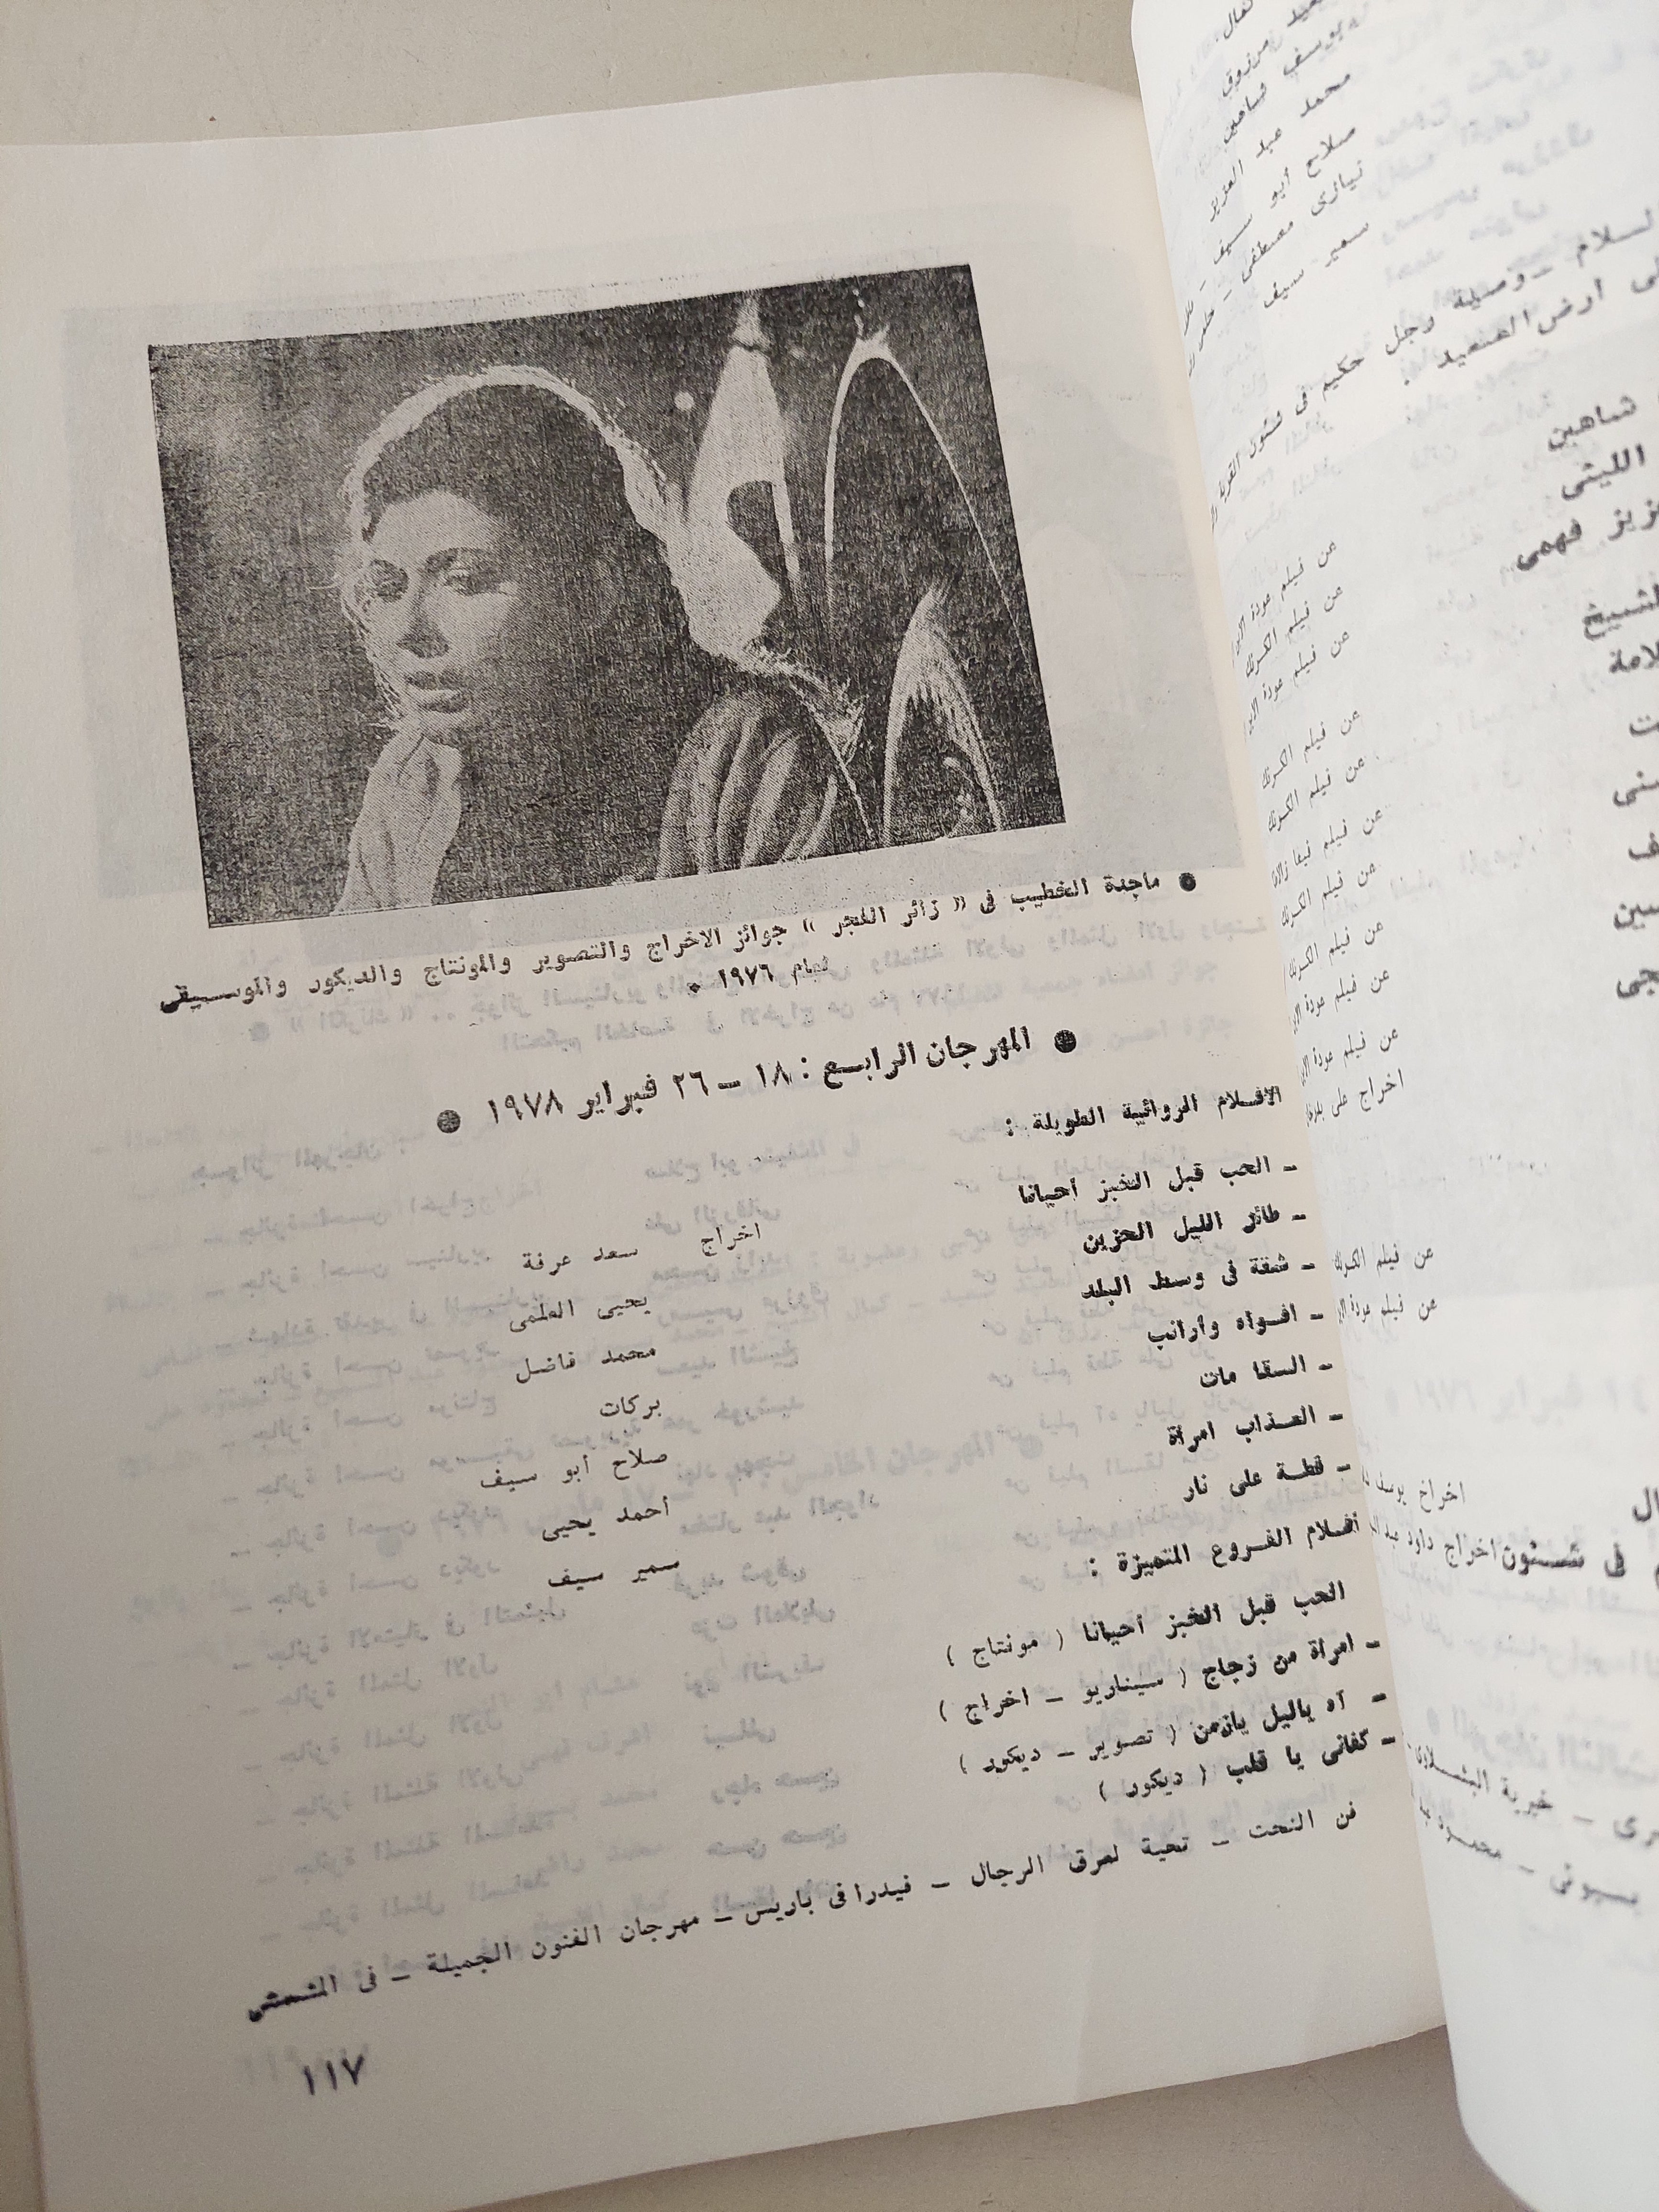 ● ماجدة الخطيب فى « زائر الفجر » جوائز الاخراج والتصوير والمونتاج والديكور والموسيقى
لعام ١٩٧٦ •
● المهرجان الرابع : ١٨ – ٢٦ فبراير ١٩٧٨ ●
الافلام الروائية الطويلة :
– الحب قبل الخبز أحيانا اخراج سعد عرفة
– طائر الليل الحزين يحيى العلمى
– شقة فى وسط البلد محمد فاضل
– افواه وأرانب بركات
– السقا مات صلاح أبو سيف
– العذاب امرأة أحمد يحيى
– قطة على نار سمير سيف
أفلام الفروع المتميزة :
الحب قبل الخبز أحيانا ( مونتاج )
– امرأة من زجاج ( سيناريو – اخراج )
– آه ياليل يازمن ( تصوير – ديكور )
– كفانى يا قلب ( ديكور )
فن النحت – تحية لعرق الرجال – فيدرا فى باريس – مهرجان الفنون الجميلة – فى المشمش
١١٧
مرزوق
يوسف شاهين
محمد عبد العزيز
صلاح أبو سيف
نيازى مصطفى
سمير سيف
السلام – وصية رجل حكيم فى شئون القرية
أرض الصعيد .
شاهين
الليثى
فهمى
الشيخ
عن فيلم
عن فيلم الكرنك
عن فيلم عودة
عن فيلم الكرنك
عن فيلم الكرنك
عن فيلم
عن فيلم الكرنك
عن فيلم الكرنك
عن فيلم عودة
عن فيلم عودة
اخراج على
عن فيلم الكرنك
عن فيلم عودة
اخراج يوسف
فى شئون اخراج داود عبد
– خيرية البشلاوى
بسيونى – محمود